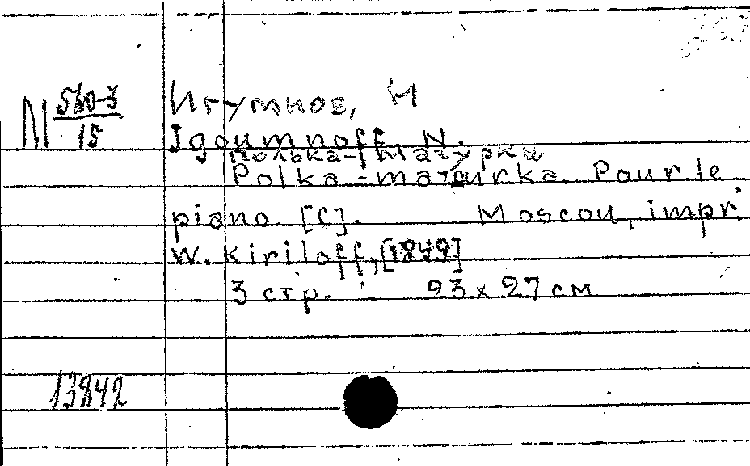 М 560-3
15
Игумнов, Н
Igoumnoff, N.
Полька-мазурка
Polka-mazurka. Pour le
piano. [C]. Moscou, impr.
W. Kiriloff, [1849]
3 стр. 23 x 27 см
13842